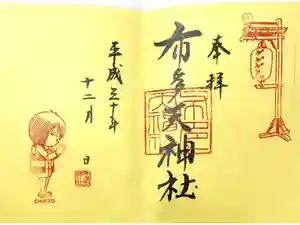 奉拝
布多天神社
平成三十年
十二月 日